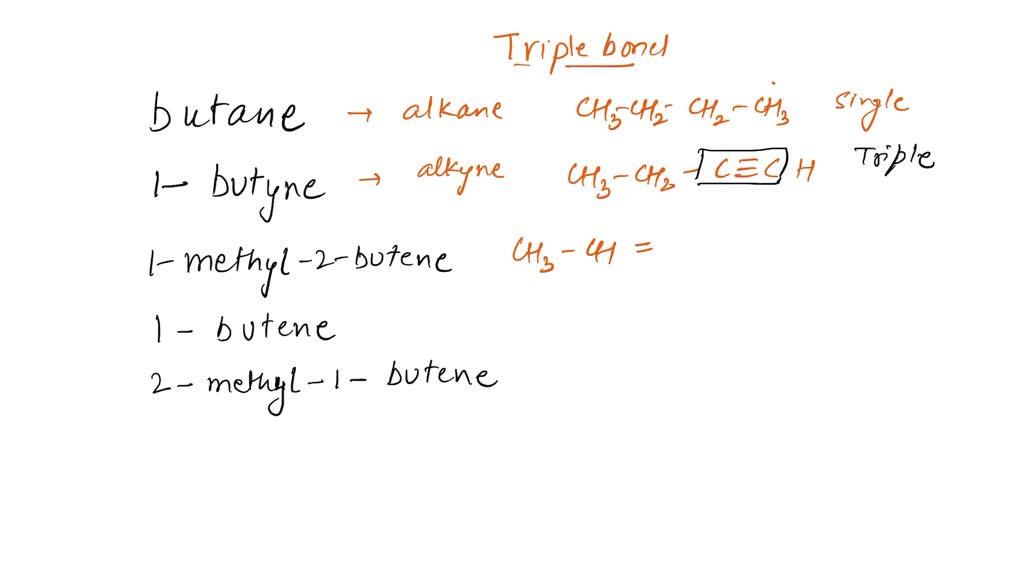 Triple bond
butane → alkane CH₃-CH₂- CH₂-CH₃ single
1- butyne → alkyne CH₃-CH₂-C≡CH Triple
1-methyl-2-butene CH₃-CH=
1- butene
2-methyl-1- butene